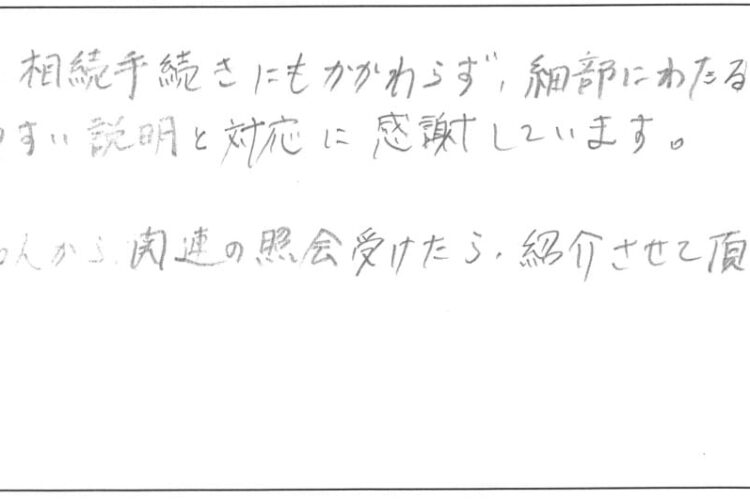 相続手続きにもかかわらず、細部にわたる
すい説明と対応に感謝しています。
から関連の照会受けたら、紹介させて頂